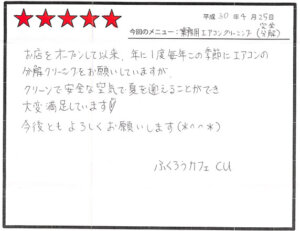 平成30年4月25日
今回のメニュー：業務用エアコンクリーニング（完全分解）
お店をオープンして以来、年に1度毎年この季節にエアコンの
分解クリーニングをお願いしていますが、
クリーンで安全な空気で夏を迎えることができ
大変満足しています
今後ともよろしくお願いします(*^^*)
ふくろうカフェ CU